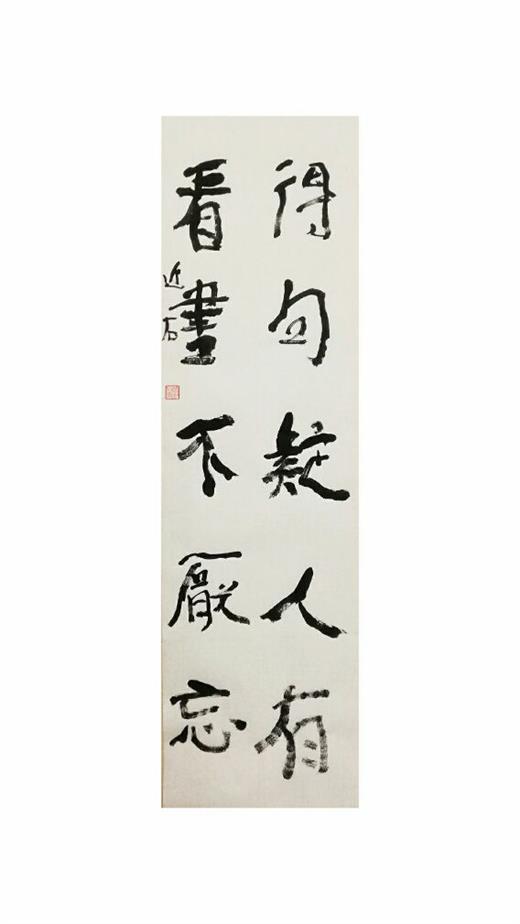 得句疑人有
看書不厭忘
近石